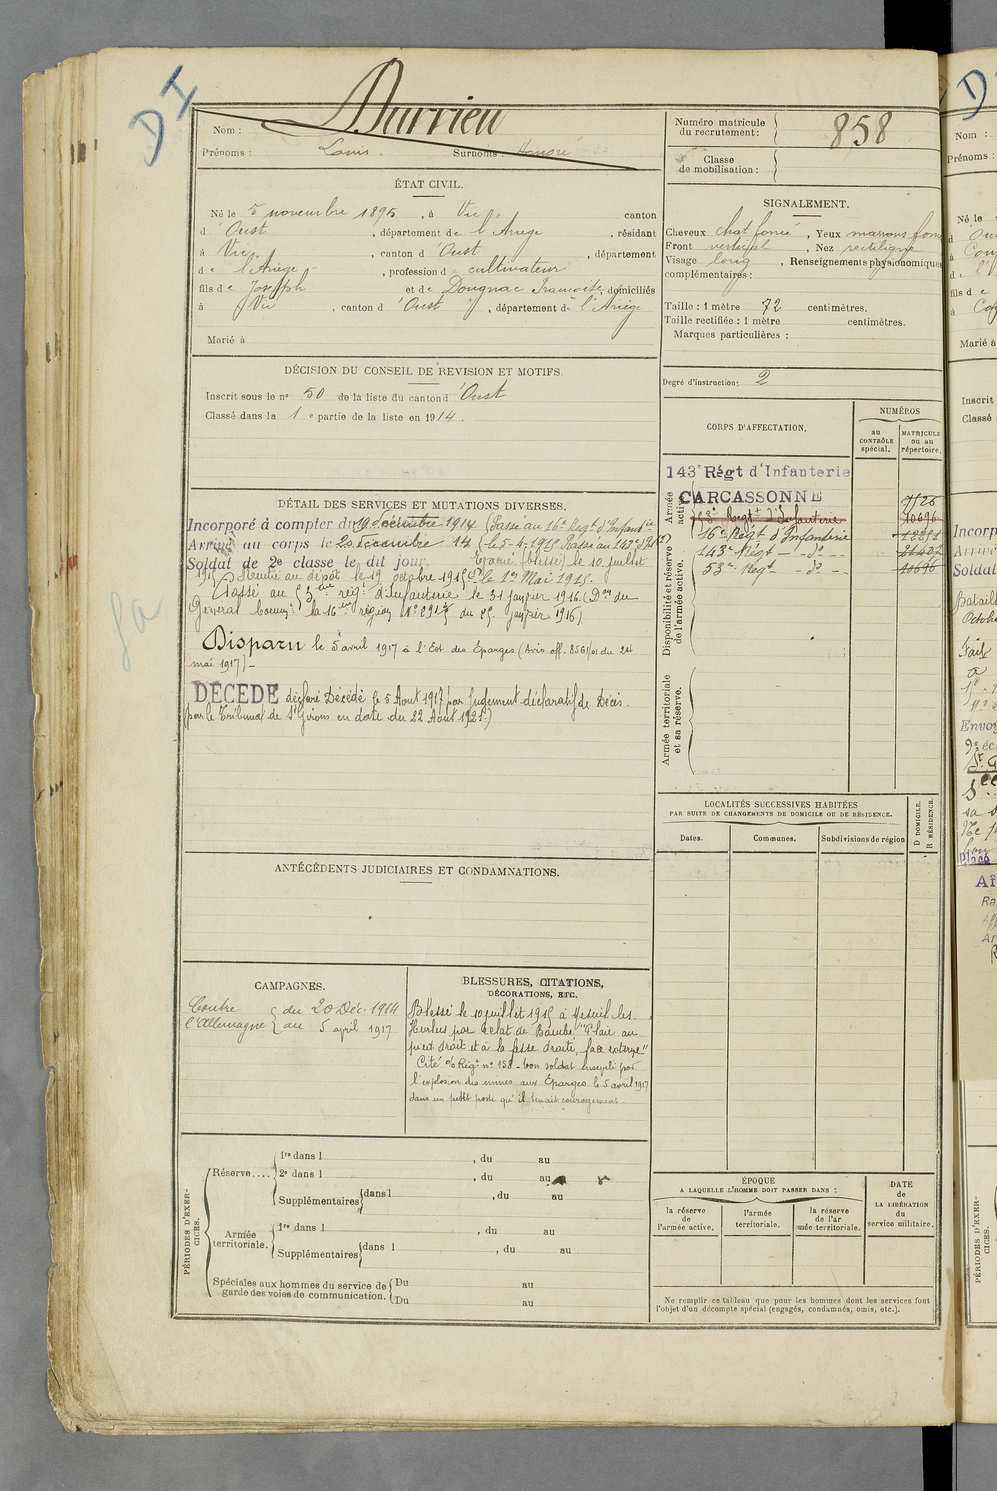 D I
Durrieu
Nom :
Prénoms : Louis. Surnoms : Honoré
Numéro matricule du recrutement : 858
Classe de mobilisation :
ÉTAT CIVIL.
Né le 5 novembre 1895, à Vic, canton
d'Oust, département de l'Ariège, résidant
à Vic, canton d'Oust, département
de l'Ariège, profession de cultivateur
fils de Joseph et de Dougnac Françoise, domiciliés
à Vic, canton d'Oust, département de l'Ariège
Marié à
SIGNALEMENT.
Cheveux chat foncé, Yeux marrons foncé
Front vertical, Nez rectiligne
Visage long, Renseignements physionomiques
complémentaires :
Taille : 1 mètre 72 centimètres.
Taille rectifiée : 1 mètre centimètres.
Marques particulières :
Degré d'instruction : 2
DÉCISION DU CONSEIL DE REVISION ET MOTIFS
Inscrit sous le no 50 de la liste du canton d'Oust
Classé dans la 1e partie de la liste en 1914.
CORPS D'AFFECTATION.
NUMÉROS
au CONTRÔLE spécial.
MATRICULE ou au répertoire.
Armée active.
143e Régt d'Infanterie
CARCASSONNE
53e Regt d'Infanterie 10696
16e Régt d'Infanterie
143e Régt - do -
53e Regt - do - 10696
Disponibilité et réserve de l'armée active.
Armée territoriale et sa réserve.
DÉTAIL DES SERVICES ET MUTATIONS DIVERSES.
Incorporé à compter du 19 décembre 1914 (Passé au 16e Regt d'Infanterie
Arrivé au corps le 20 décembre 14 (le 5-4-1915 Passé au 143e d'Inf
Soldat de 2e classe le dit jour. Evacué (blessé) le 10 juillet
1915 Rentré au dépôt le 19 octobre 1915 le 1er Mai 1915.
Passé au 53ème reigt d'Infanterie le 31 janvier 1916. (Don du
General Commt la 16eme région No 8912 du 25 janvier 1916)
Disparu le 5 avril 1917 à l'Est des Eparges (Avis off. 8561/01 du 24
mai 1917) -
DÉCÉDÉ déclaré Décédé le 5 Aout 1917 par jugement déclaratif de Décés.
(par le Tribunal de St Girons en date du 22 Août 1921.)
LOCALITÉS SUCCESSIVES HABITÉES
PAR SUITE DE CHANGEMENTS DE DOMICILE OU DE RÉSIDENCE.
Dates. Communes. Subdivisions de région
D DOMICILE.
R RÉSIDENCE.
ANTÉCÉDENTS JUDICIAIRES ET CONDAMNATIONS.
CAMPAGNES.
Contre l'Allemagne du 20 Déc. 1914
au 5 april 1917
BLESSURES, CITATIONS,
DÉCORATIONS, ETC.
Blessé le 10 juillet 1915 à Mesnil les
Hurlus par Eclat de Bombe "Plaie au
pied droit et à la fesse droite, face externe"
Cité o/ Régt no 158 - bon soldat enseveli par
l'explosion des mines aux Éparges le 5 avril 1917
dans un petit poste qu'il tenait courageusement
PÉRIODES D'EXERCICES.
Réserve....
1re dans l , du au
2e dans l , du au
Supplémentaires dans l , du au
Armée territoriale.
1re dans l , du au
Supplémentaires dans l , du au
Spéciales aux hommes du service de garde des voies de communication.
Du au
Du au
ÉPOQUE
A LAQUELLE L'HOMME DOIT PASSER DANS :
la réserve de l'armée active.
l'armée territoriale.
la réserve de l'armée territoriale.
DATE
de
LA LIBÉRATION
du
service militaire.
Ne remplir ce tableau que pour les hommes dont les services font
l'objet d'un décompte spécial (engagés, condamnés, omis, etc.).